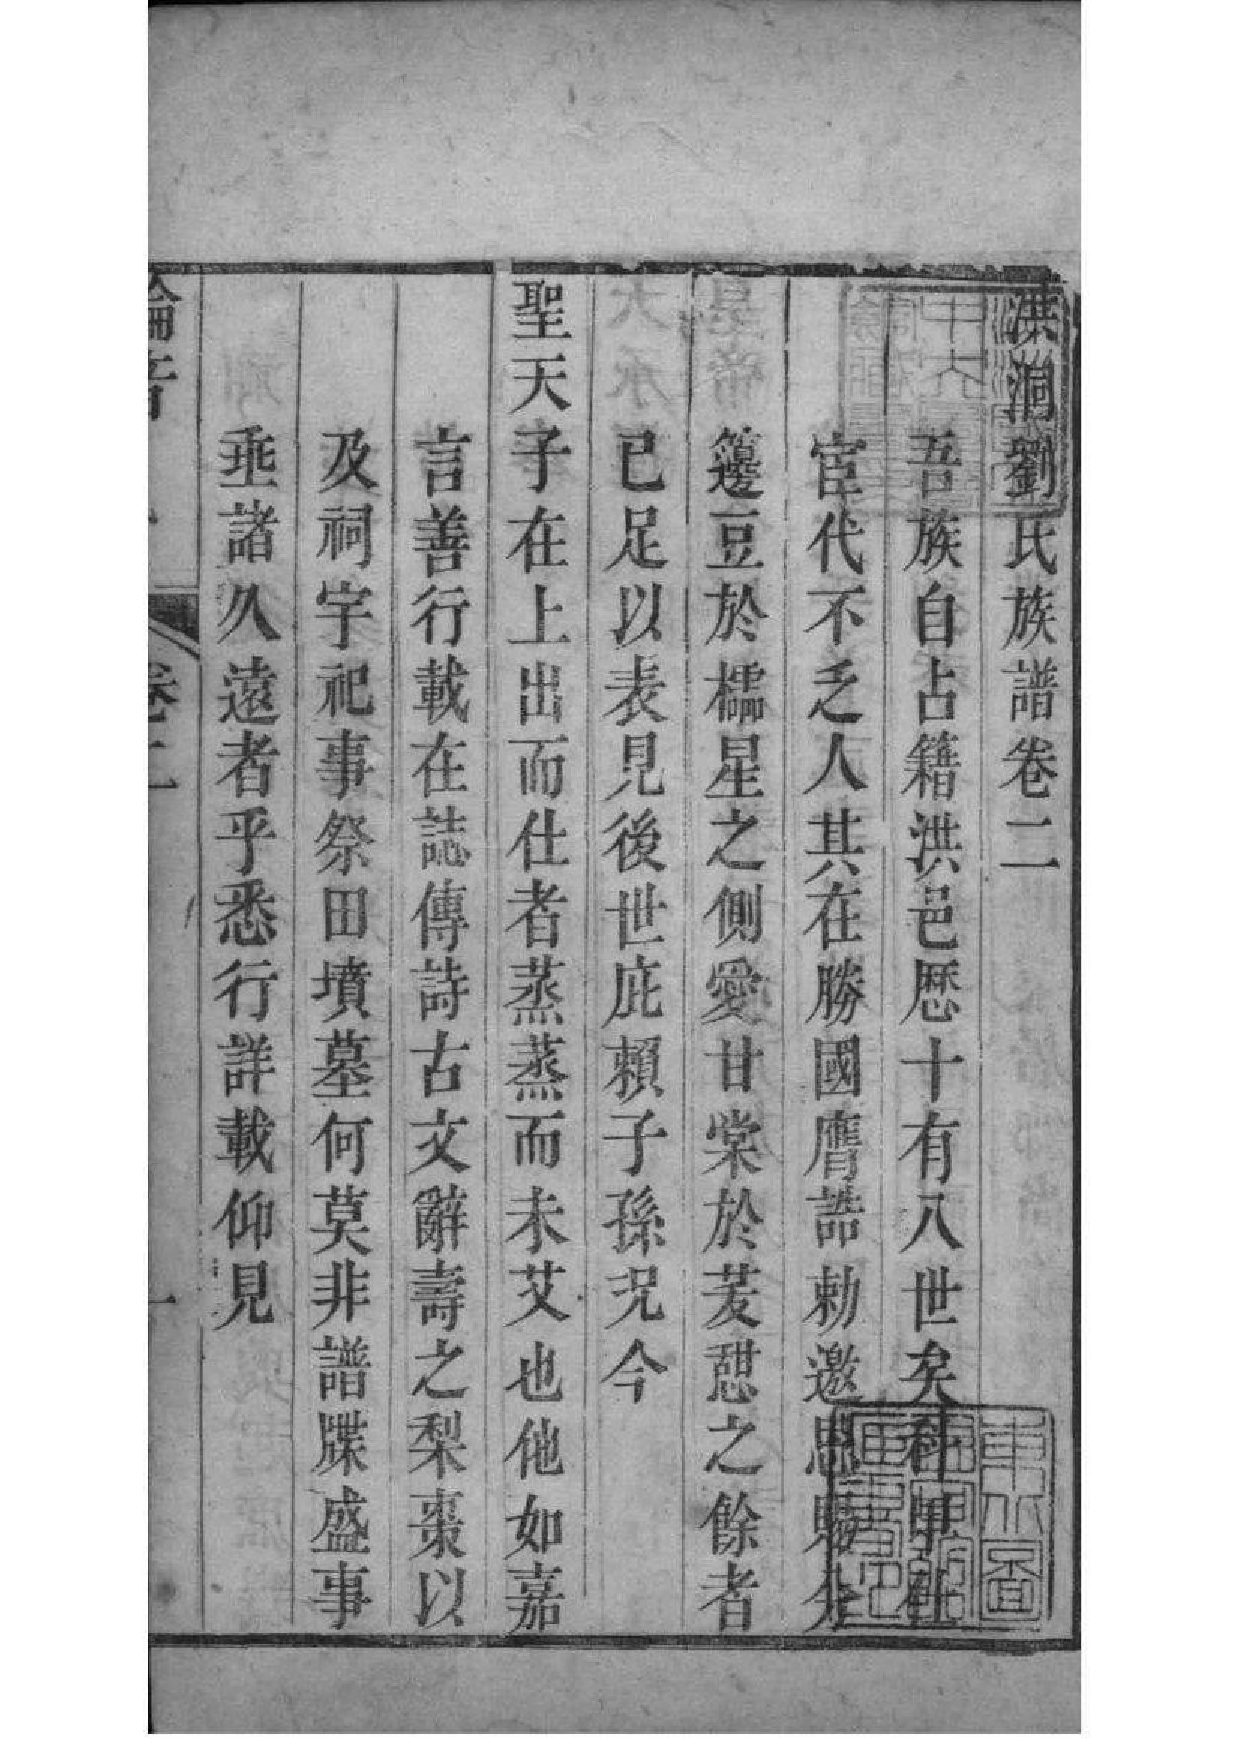 洪洞劉氏族譜卷二
吾族自占籍洪邑歷十有八世矣科甲仕
宦代不乏人其在勝國膺誥勅邀恩賜分
籩豆於櫺星之側愛甘棠於茇憇之餘者
已足以表見後世庇賴子孫况今
聖天子在上出而仕者蒸蒸而未艾也他如嘉
言善行載在誌傳詩古文辭壽之梨棗以
及祠宇祀事祭田墳墓何莫非譜牒盛事
垂諸久遠者乎悉行詳載仰見
綸音
卷二
一